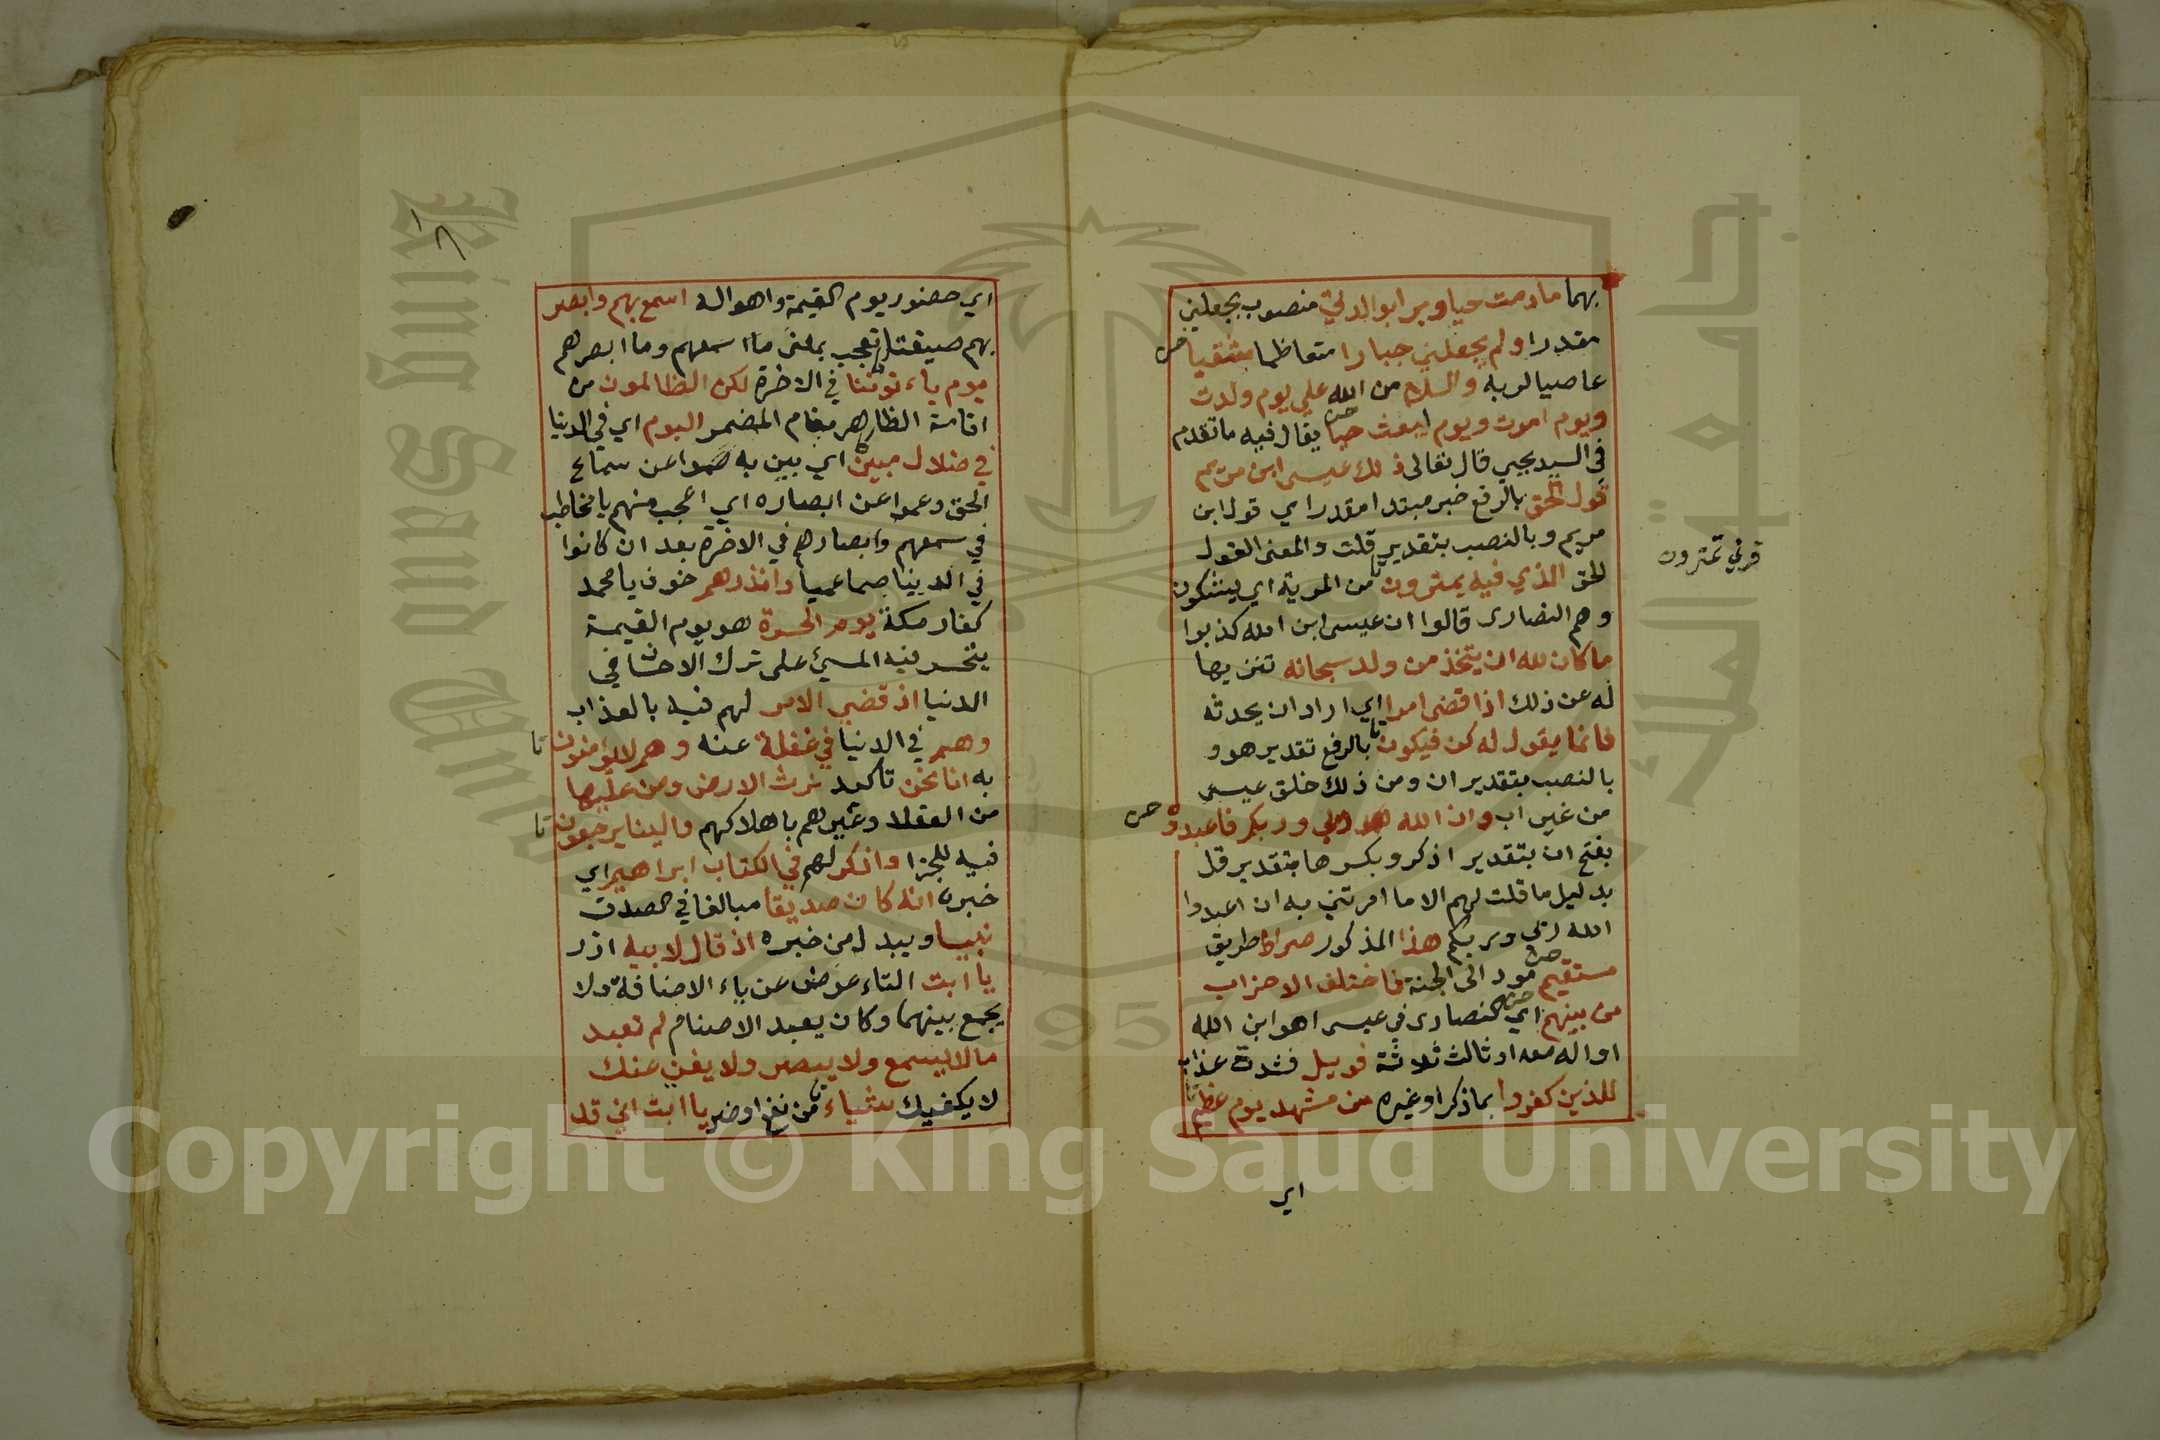 بهما مادمت حيا وبرا بوالدتي منصوب بجعلني
مقدرا ولم يجعلني جبارا متعاظما شقيا
عاصيا لربه والسلام من الله علي يوم ولدت
ويوم اموت ويوم ابعث حيا يقال فيه ما تقدم
في السيد يحيي قال تعالى ذلك عيسى ابن مريم
قول الحق بالرفع خبر مبتدا مقدر اي قول ابن
مريم وبالنصب بتقدير قلت والمعنى القول
الحق الذي فيه يمترون من المرية اي يشكون
وهم النصارى قالوا ان عيسى ابن الله كذبوا
ما كان لله ان يتخذ من ولد سبحانه تنزيها
له عن ذلك اذا قضى امرا اي اراد ان يحدثه
فانما يقول له كن فيكون بالرفع تقدير هو و
بالنصب بتقدير ان ومن ذلك خلق عيسى
من غير اب وان الله ربي وربكم فاعبدوه
بفتح ان بتقدير اذكر وبكسرها بتقدير قل
بدليل ما قلت لهم الا ما امرتني به ان اعبدوا
الله ربي وربكم هذا المذكور صراط طريق
مستقيم مود الى الجنة فاختلف الاحزاب
من بينهم اي النصارى في عيسى اهو ابن الله
او اله معه او ثالث ثلاثة فويل فشدة عذاب
للذين كفروا بما ذكر او غيره من مشهد يوم عظيم
اي
قرئ تمترون
اي حضور يوم القيمة واهواله اسمع بهم وابصر
بهم صيغتا تعجب بمعنى ما اسمعهم وما ابصرهم
يوم ياءتوننا في الاخرة لكن الظالمون من
اقامة الظاهر مقام المضمر اليوم اي في الدنيا
في ضلال مبين اي بين به صموا عن سماع
الحق وعموا عن ابصاره اي اعجب منهم يا مخاطب
في سمعهم وابصارهم في الاخرة بعد ان كانوا
في الدنيا صما عميا وانذرهم خوف يا محمد
كفار مكة يوم الحسرة هو يوم القيمة
يتحسر فيه المسئ على ترك الاحسان في
الدنيا اذ قضي الامر لهم فيه بالعذاب
وهم في الدنيا في غفلة عنه وهم لا يؤمنون
به انا نحن تاكيد نرث الارض ومن عليها
من العقلا وغيرهم باهلاكهم والينا يرجعون
فيه للجزا واذكر لهم في الكتاب ابراهيم اي
خبره انه كان صديقا مبالغا في الصدق
نبيا ويبدل من خبره اذ قال لابيه ازر
يا ابت التاء عوض عن ياء الاضافة ولا
يجمع بينهما وكان يعبد الاصنام لم تعبد
ما لا يسمع ولا يبصر ولا يغني عنك
لا يكفيك شياء من نفع او ضر يا ابت اني قد
Copyright © King Saud University
King Saud University
جامعة الملك سعود